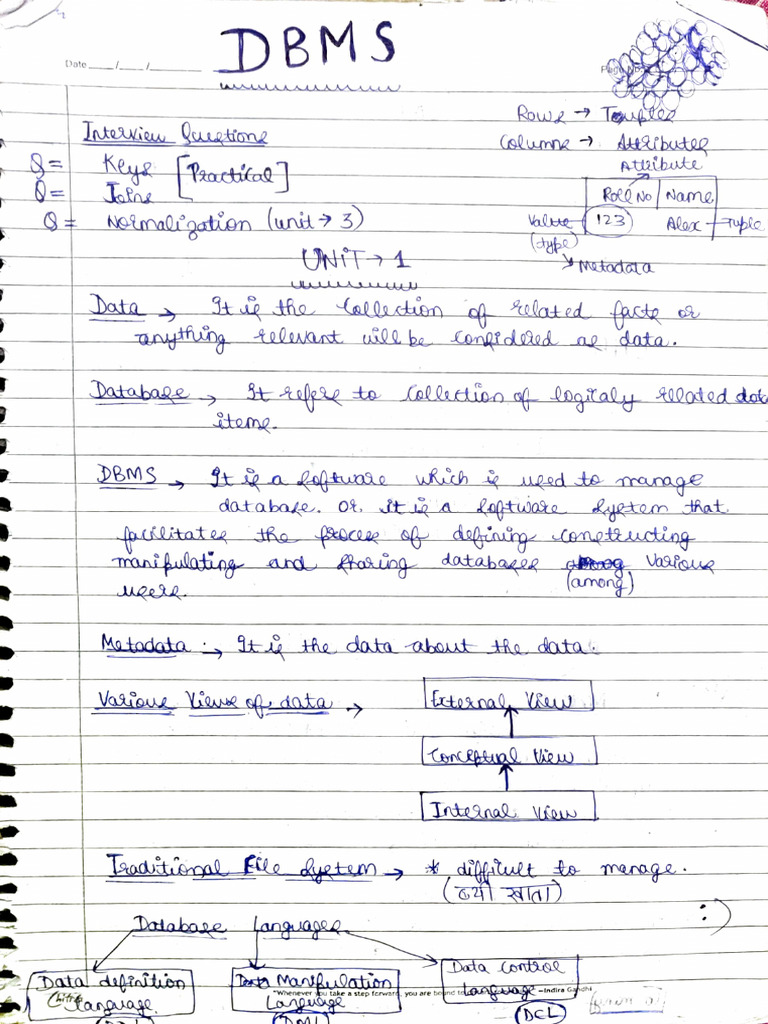 DBMS
Date ___/___/______
Rows → Touples
Columns → Attributes
Attribute
Interview Questions
Q = Keys [Practical]
Q = Joins
Q = Normalization (unit → 3)
Roll No | Name
Value 123 Alex → Tuple
(type)
Metadata
UNIT → 1
Data → It is the collection of related facts or
anything relevant will be considered as data.
Database → It refers to collection of logicaly rellated data
items.
DBMS → It is a software which is used to manage
database. Or. it is a software system that
facilitates the process of defining constructing
manipulating and sharing databases various
(among)
users.
Metadata :→ It is the data about the data.
Various Views of data →
External View
Conceptual View
Internal View
Traditional File System → * difficult to manage.
खाता)
:)
Database Languages
Data definition
Language
Data Manipulation
Language
(DML)
Data control
Language
(DCL)
"Whenever you take a step forward, you are bound to –Indira Gandhi